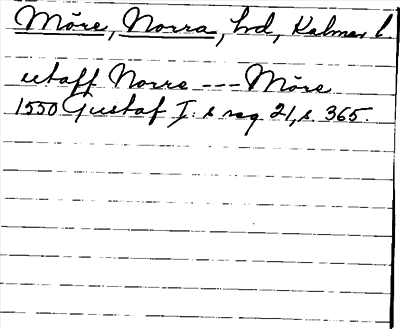 Möre, Norra, hd, Kalmar l.
utaff Norre --- Möre
1550 Gustaf I:s reg 21, s. 365.